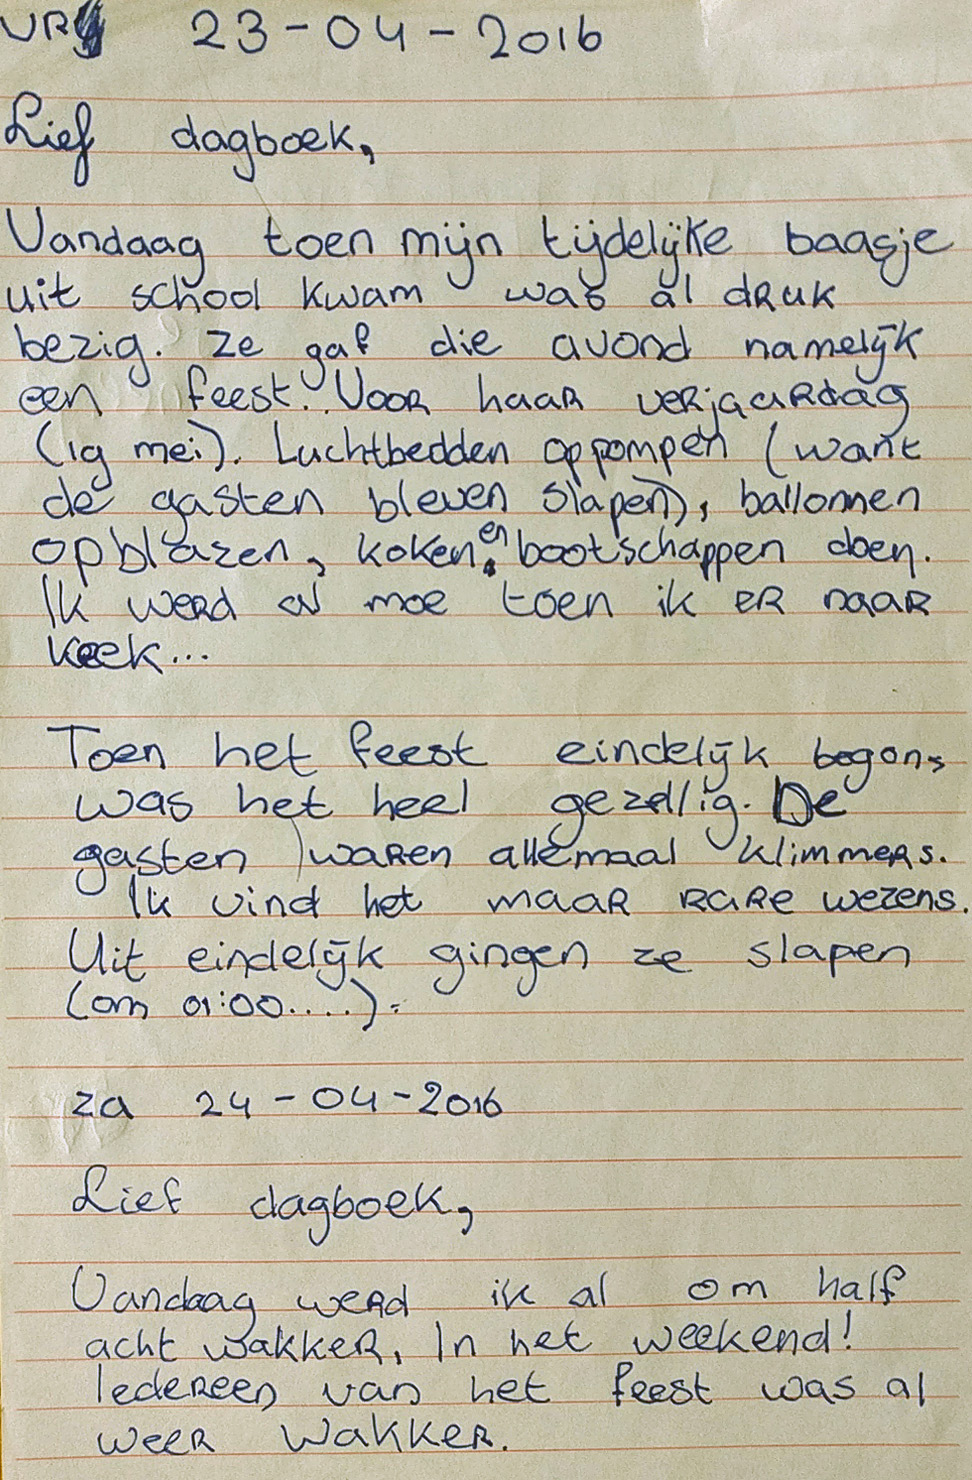 VRY 23-04-2016
Lief dagboek,
Vandaag toen mijn tijdelijke baasje
uit school kwam was al druk
bezig. Ze gaf die avond namelijk
een feest. Voor haar verjaardag
(19 mei). Luchtbedden oppompen (want
de gasten bleven slapen), ballonnen
opblazen, koken en bootschappen doen.
Ik werd al moe toen ik er naar
keek...
Toen het feest eindelijk begon,
was het heel gezellig. De
gasten waren allemaal klimmers.
Ik vind het maar rare wezens.
Uit eindelijk gingen ze slapen
(om 01:00....).
za 24-04-2016
Lief dagboek,
Vandaag werd ik al om half
acht wakker. In het weekend!
Iedereen van het feest was al
weer wakker.